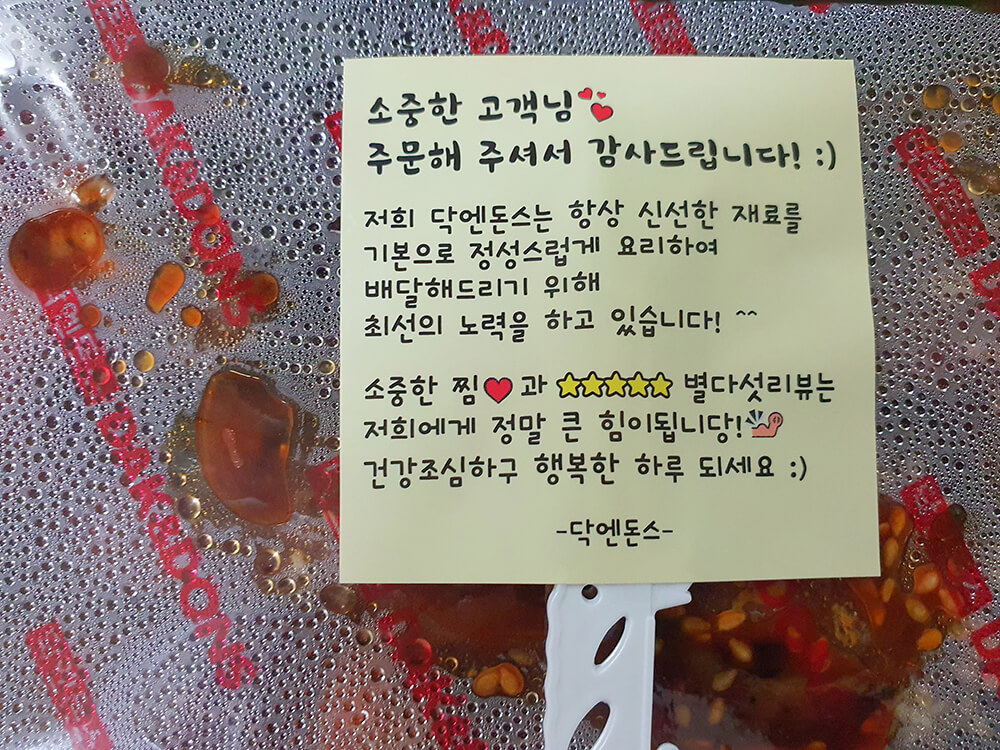 소중한 고객님💕
주문해 주셔서 감사드립니다! :)
저희 닥엔돈스는 항상 신선한 재료를
기본으로 정성스럽게 요리하여
배달해드리기 위해
최선의 노력을 하고 있습니다! ^^
소중한 찜❤과 ⭐⭐⭐⭐⭐ 별다섯리뷰는
저희에게 정말 큰 힘이됩니당!
건강조심하구 행복한 하루 되세요 :)
-닥엔돈스-
DAK&DONS
DAK&DONS